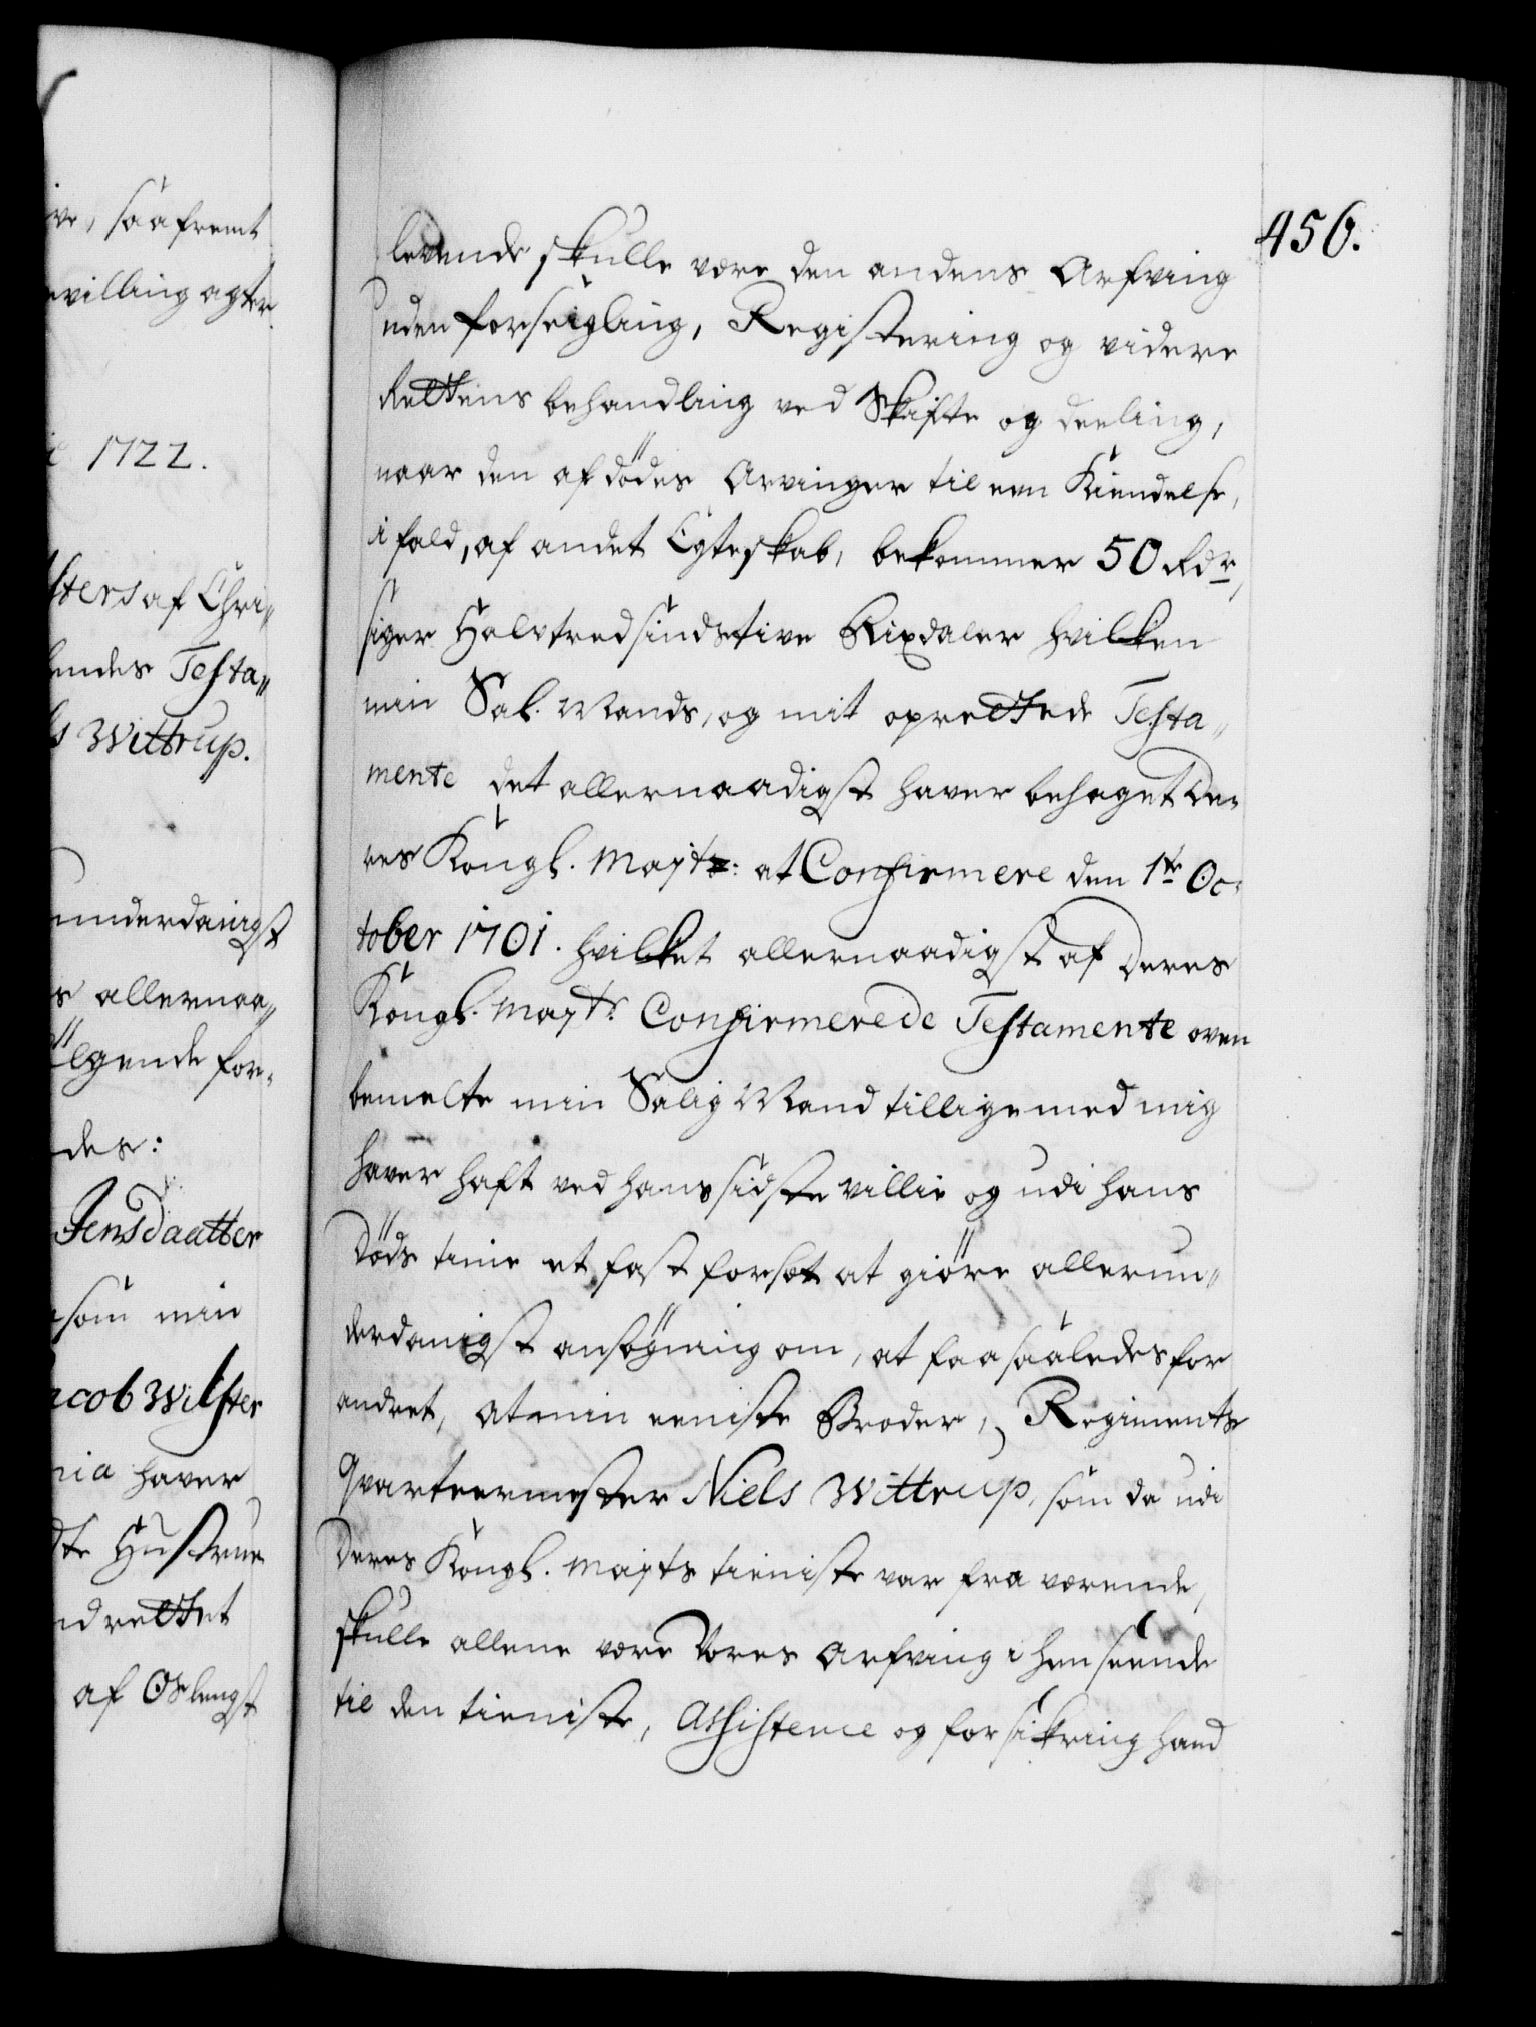 ve, saafremt
evilling agter
1722.
sters af Chri„
hendes Testa„
Wittrup.
underdanigst
s allernaa„
ölgende for„
des:
Jensdaatter
som min
acob Wilster
nia haver
dte Hustrue
ndrettet
af Oslengst
456.
levende skulle være den andens Arfving
uden forseigling, Registering og videre
Rettens behandling ved Skifte og deeling,
naar den afdödes Arvinger til een Kiendelse,
i fald, af andet Egteskab, bekommer 50 Rdr,
siger Halvtredsindstive Rixdaler hvilken
min Sal. Mands, og mit oprettede Testa„
mente det allernaadigst haver behaget De„
res Kongl. Majts: at Confirmere den 1te Oc„
tober 1701. hvilket allernaadigst af Deres
Kongl. Majts: Confirmerede Testamente oven
bemelte min Salig Mand tillige med mig
haver haft ved hans sidste villie og udi hans
Döds time et fast forsæt at giöre allerun„
derdanigst ansögning om, at faa saaledes for
andret, at min eeniste Broder, Regiments
Qvarteermester Niels Wittrup, som da udi
Deres Kongl. Majts tieniste var fra værende,
skulle allene være Vores Arfving i henseende
til den tieniste, Assistence og forsikring hand